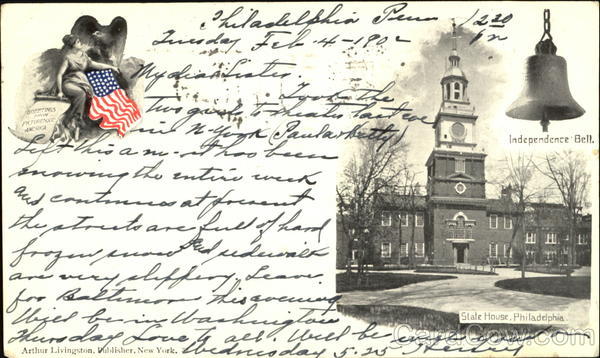 Philadelphia Penn 12 30
Tuesday Feb 4-1902
My dear Sister
Took the
two girls to theatre last eve
in N-York Paula & Letty
Left this a.m. it has been
snowing the entire week
and continues at present
the streets are full of hard
frozen snow and sidewalk
are very slippery. Leave
for Baltimore this evening
Will be in Washington
Thursday Love to all. Will be
Wednesday 5.25
GREETINGS
FROM
PICTURESQUE
AMERICA
Independence Bell.
State House, Philadelphia.
Arthur Livingston, Publisher, New York.
CardCow.com